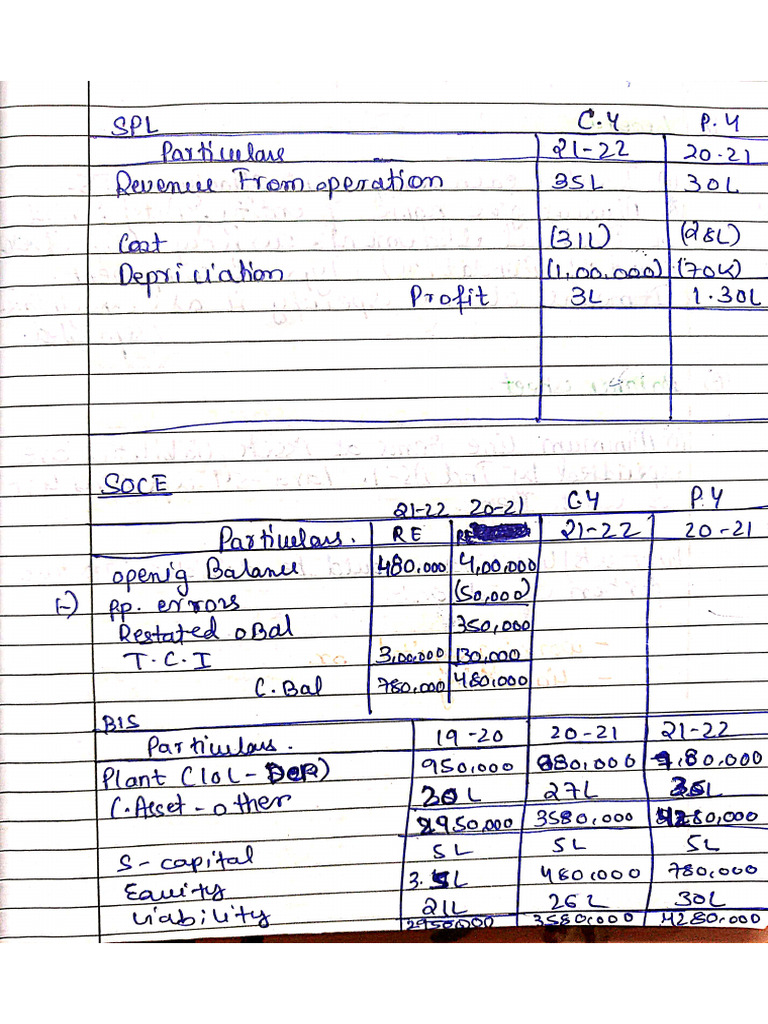 SPL C.Y P.Y
Particulars 21-22 20-21
Revenue From operation 35L 30L
Cost (31L) (28L)
Depriciation (1,00,000) (70K)
Profit 3L 1.30L
SOCE
21-22 20-21 C.Y P.Y
Particulars. RE RE 21-22 20-21
openig Balance 480,000 4,00,000
(-) pp. errors (50,000)
Restated oBal 350,000
T.C.I 3,00,000 130,000
C.Bal 780,000 480,000
B/S
Particulars. 19-20 20-21 21-22
Plant (10L- 950,000 880,000 80,000
C.Asset-other 20L 27L 35L
2950,000 3580,000 4280,000
S-capital 5L 5L 5L
Equity 3.5L 480,000 780,000
Liability 21L 26L 30L
2950,000 3580,000 4280,000